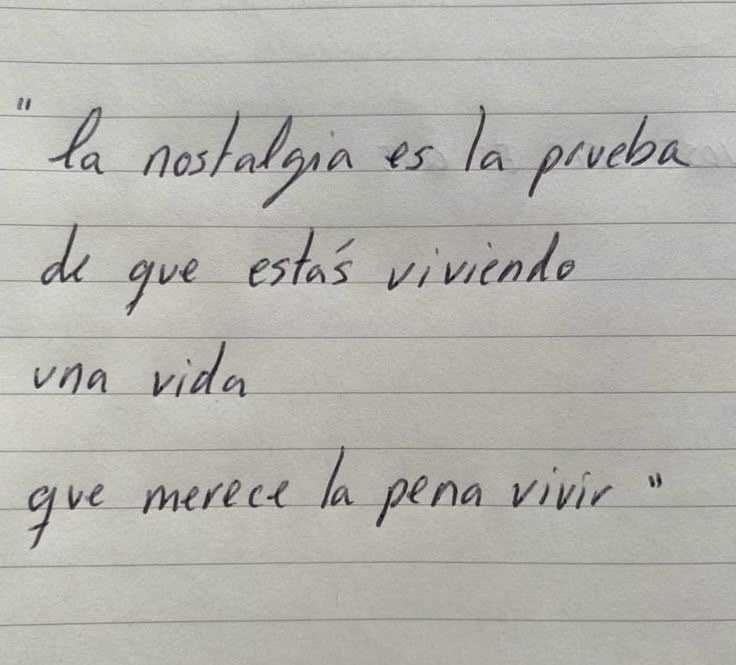 "La nostalgia es la prueba
de que estás viviendo
una vida
que merece la pena vivir"